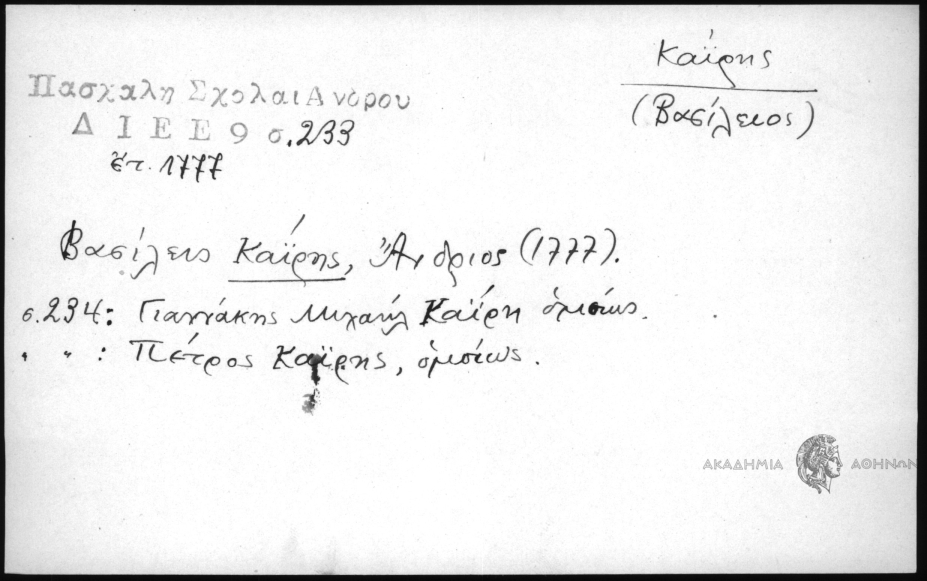 Καΐρης
(Βασίλειος)
Πασχαλη Σχολαι Ανδρου
ΔΙΕΕ 9 σ.233
ἔτ. 1777
Βασίλειος Καΐρης, Ἄνδριος (1777).
σ.234: Γιαννάκης Μιχαήλ Καΐρη ὁμοίως.
" " : Πέτρος Καΐρης, ὁμοίως.
ΑΚΑΔΗΜΙΑ ΑΘΗΝΩΝ